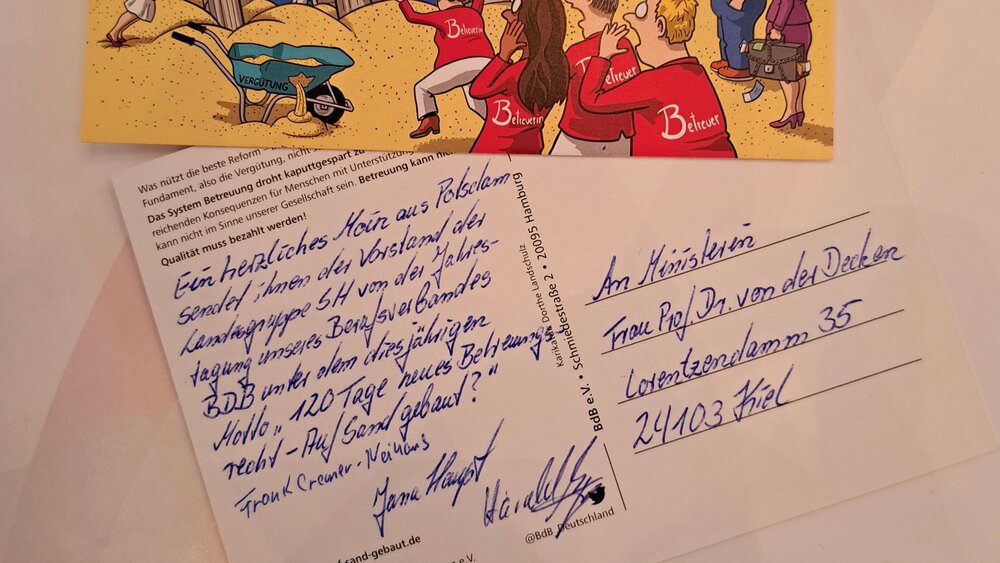 VERGÜTUNG
Betreuerin
Betreuerin
Betreuer
Betreuer
Was nützt die beste Reform
Fundament, also die Vergütung, nicht
Das System Betreuung droht kaputtgespart zu
reichenden Konsequenzen für Menschen mit Unterstützung
kann nicht im Sinne unserer Gesellschaft sein. Betreuung kann
Qualität muss bezahlt werden!
Ein herzliches Moin aus Potsdam
sendet ihnen der Vorstand der
Landesgruppe SH von der Jahres-
tagung unseres Berufsverbandes
BDB unter dem diesjährigen
Motto „120 Tage neues Betreuungs-
recht - Auf Sand gebaut?"
Frank Cremer-Neihaus
Jana Haupt
sand-gebaut.de
e.V.
Karikatur: Dorthe Landschulz
BdB e.V. • Schmiedestraße 2 • 20095 Hamburg
@BdB_Deutschland
An Ministerin
Frau Prof. Dr. von der Decken
Lorentzendamm 35
24103 Kiel